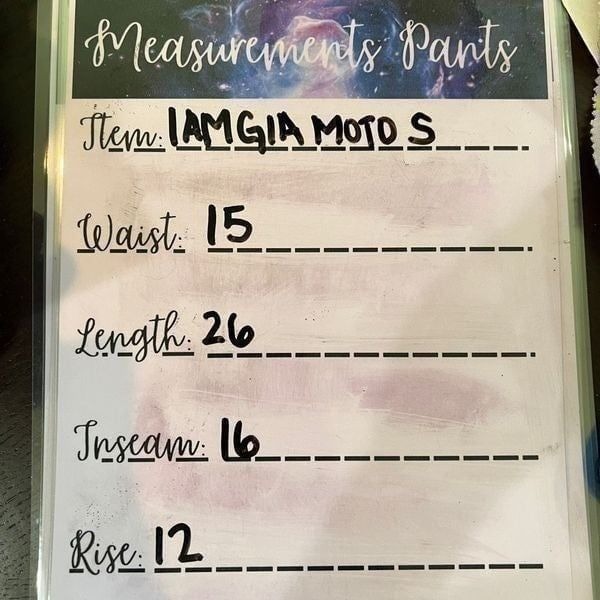 Measurements Pants
Item: IAMGIA MOTO S
Waist: 15
Length: 26
Inseam: 16
Rise: 12